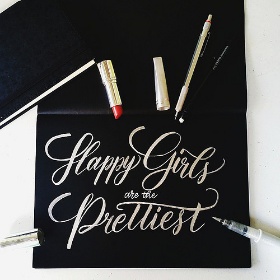 Happy Girls
are the
Prettiest